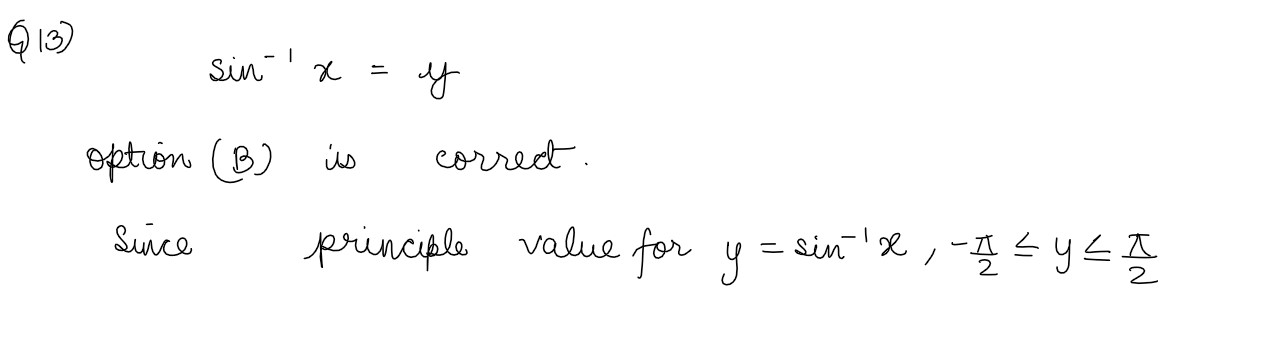 Q13)
sin⁻¹ x = y
option (B) is correct.
Since principle value for y = sin⁻¹ x , -π/2 ≤ y ≤ π/2